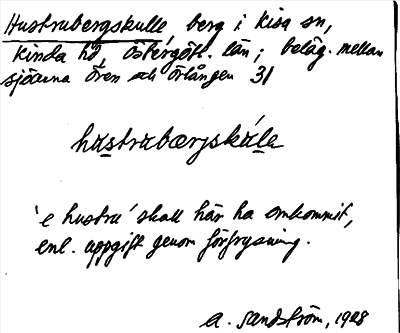 Hustrubergskulle, berg i Kisa sn,
Kinda hd, Östergötl. län; beläg. mellan
sjöarna Ören och Örlången 31
hustrubærjskúle
'e hustru' skall här ha omkommit,
enl. uppgift genom förfrysning.
A. Sandström, 1928